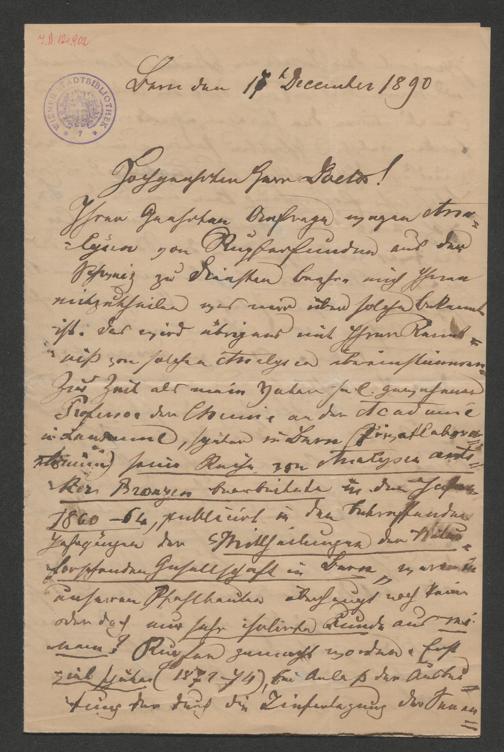 J.N. 121.902
WIENER STADTBIBLIOTHEK
Bern den 17t December 1890
Hochgeehrter Herr Doctor!
Ihrer Geehrten Anfrage wegen Ana=
=lysen von Kupferfunden aus der
Schweiz zu Diensten beehre mich Ihnen
mitzutheilen was mir über solche bekannt
ist. Das wird übrigens mit Ihrer Kennt=
=niß von solchen Analysen übereinstimmen
Zur Zeit als mein Vater sel. gewesener
Professor der Chemie an der Academie
in Lausanne, später in Bern (Privatlabora=
torium) seine Reihe von Analysen anti=
ker Bronzen bearbeitete in den Jahren
1860–64, publicirt in den betreffenden
Jahrgängen der Mittheilungen der Natur=
forschenden Gesellschaft in Bern, waren in
unseren Pfahlbauten überhaupt noch keine
oder doch nur sehr isolirte Funde aus
Kupfer gemacht worden. Erst
viel später (1872–74), bei Anlaß der Ausbeu=
tung der durch die Tieferlegung der